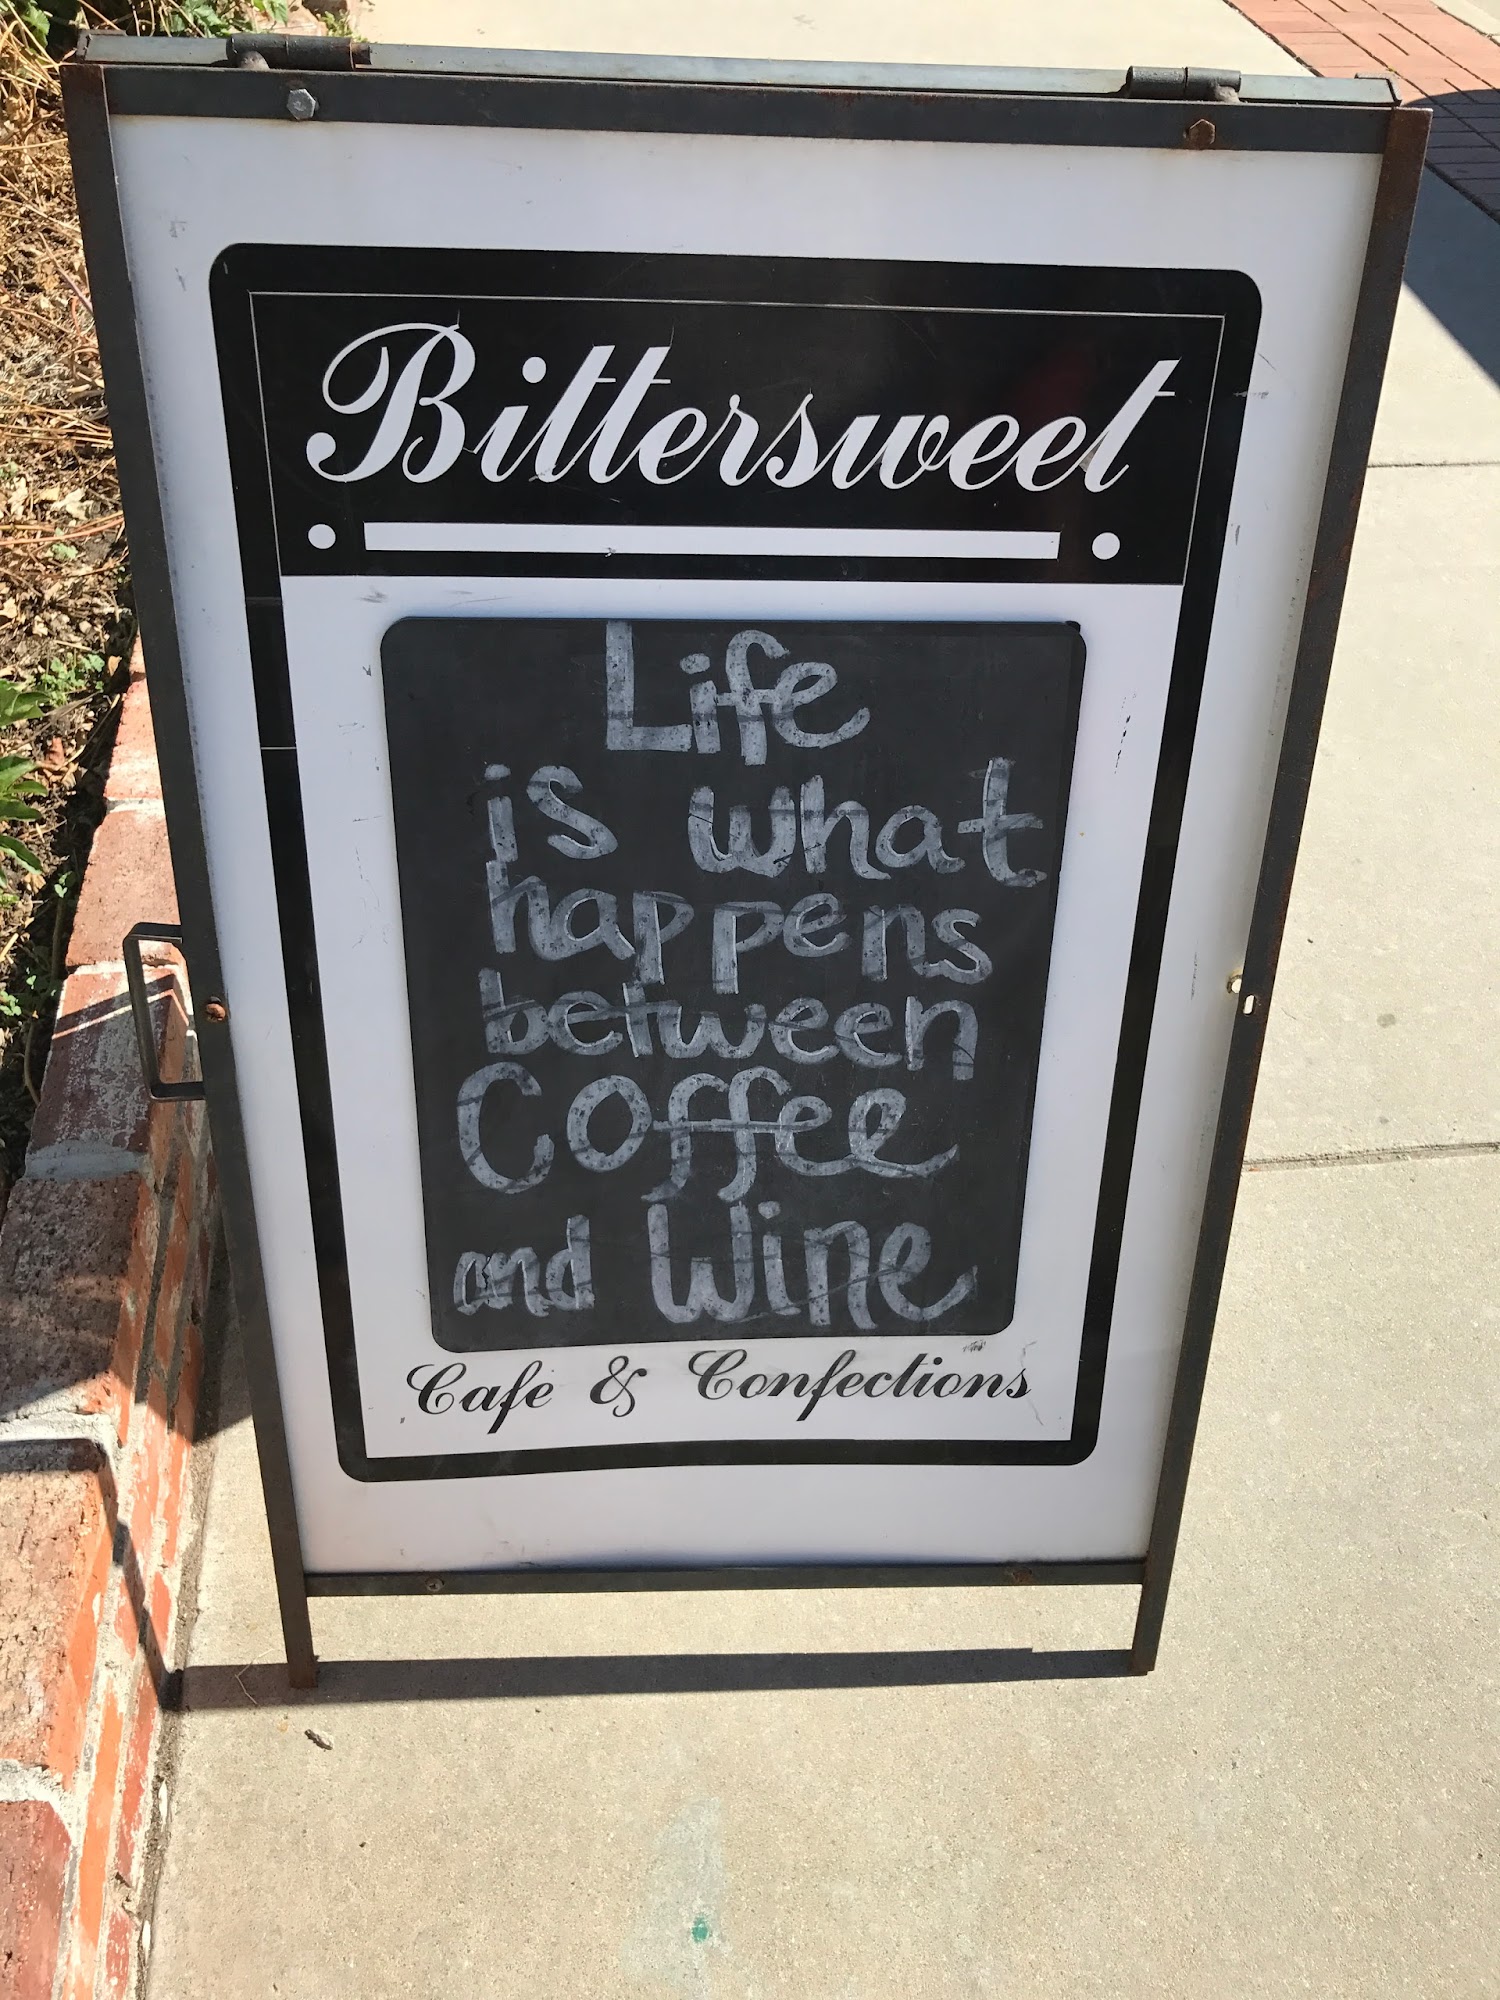 Bittersweet
Life
is what
happens
between
Coffee
and Wine
Cafe & Confections